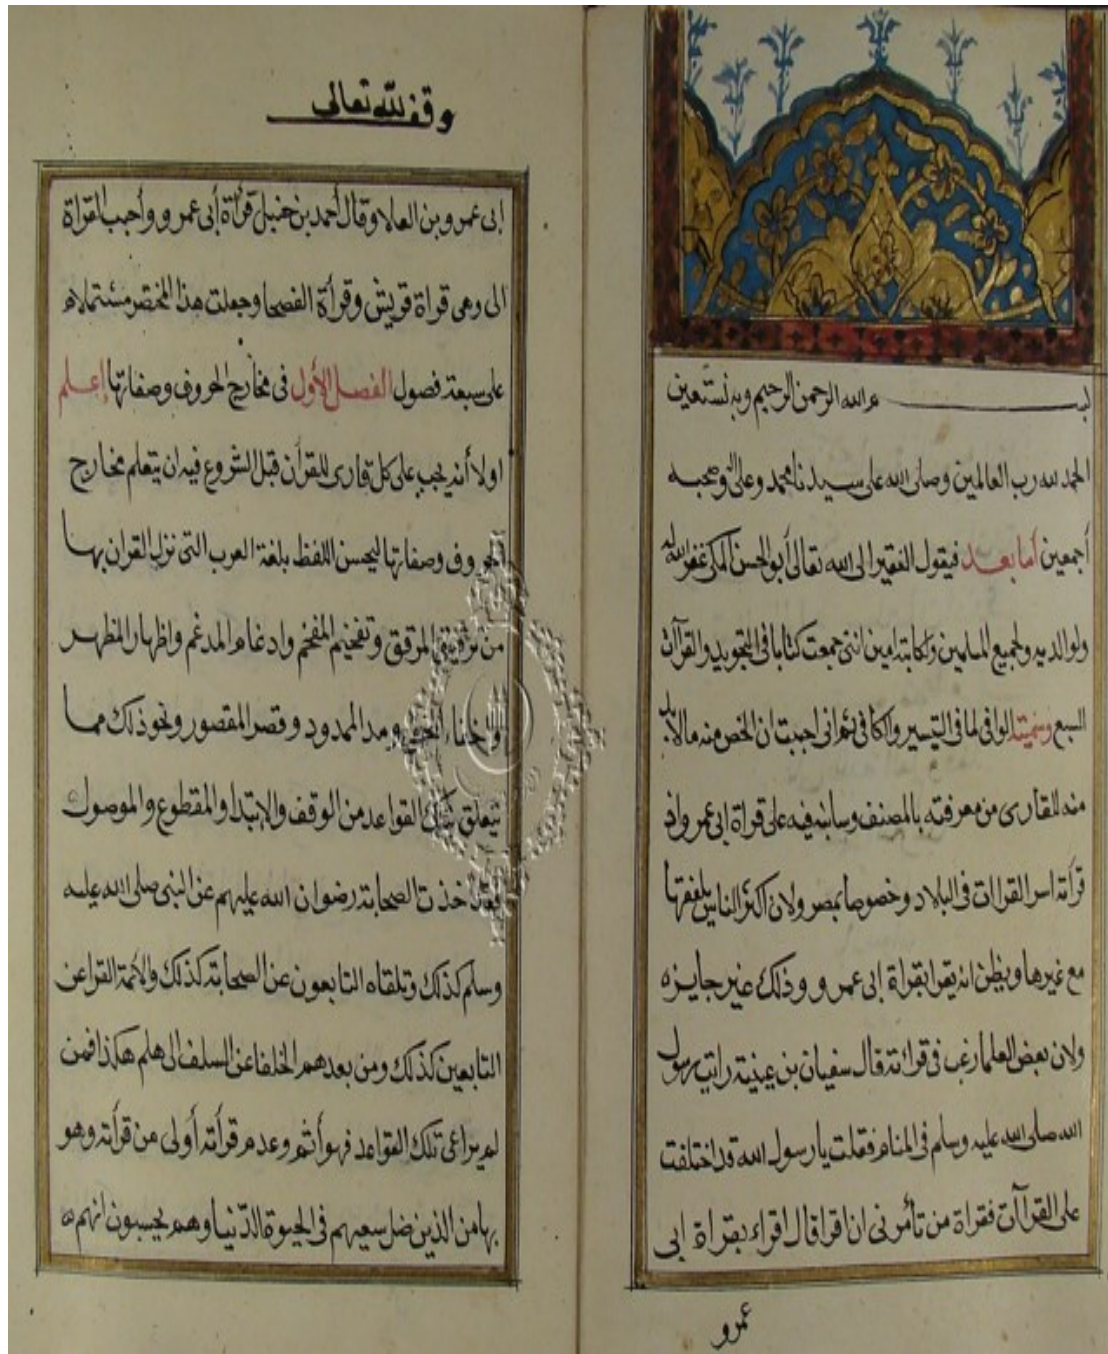 بسم الله الرحمن الرحيم وبه نستعين
الحمد لله رب العالمين وصلى الله على سيدنا محمد وعلى آله وصحبه
أجمعين أما بعد فيقول الفقير الى الله تعالى أبو الحسن المكى غفر الله له
ولوالديه ولجميع المسلمين ولكاتبه امين اننى جمعت كتابا فى التجويد والقرآت
السبع وسميته الوافى لما فى التيسير والكافى ثم انى احببت ان الخص منه ما لابد
منه للقارى من معرفته بالمصنف وسابنه فيه على قراة ابى عمرو واذ
قرأته اسر القراات فى البلاد وخصوصا بمصر ولان اكثر الناس يلفقها
مع غيرها ويظن انه يقرا بقراة ابى عمرو وذلك غير جايزه
ولان بعض العلما رغب فى قرائته قال سفيان بن عيينة رايت رسول
الله صلى الله عليه وسلم فى المنام فقلت يا رسول الله قد اختلفت
على القرآآت فقراة من تأمرنى ان اقرا قال اقراء بقراة ابى
عمرو
وقف لله تعالى
ابى عمرو بن العلا وقال أحمد بن حنبل قرأة أبى عمرو وأحب القراة
الى وهى قراة قريش وقرأة الفصحا وجعلت هذا المختصر مشتملا
على سبعة فصول الفصل الأول فى مخارج الحروف وصفاتها إعلم
اولا أنه يجب على كل قارى للقرآن قبل الشروع فيه ان يتعلم مخارج
الحروف وصفاتها ليحسن اللفظ بلغة العرب التى نزل القران بها
من ترقيق المرقق وتفخيم المفخم وادغام المدغم واظهار المظهر
واخفاء المخفى ومد الممدود وقصر المقصور ونحو ذلك مما
يتعلق بتلك القواعد من الوقف والابتدا والمقطوع والموصول
فقد اخذت الصحابة رضوان الله عليهم عن النبى صلى الله عليه
وسلم كذلك وتلقاه التابعون عن الصحابة كذلك والائمة القرا عن
التابعين كذلك ومن بعدهم الخلفا عن السلف الى هلم هكذا فمن
لم يراعى تلك القواعد فهو أثم وعدم قرأته أولى من قرأته وهو
بها من الذين ضل سعيهم فى الحيوة الدنيا وهم يحسبون انهم